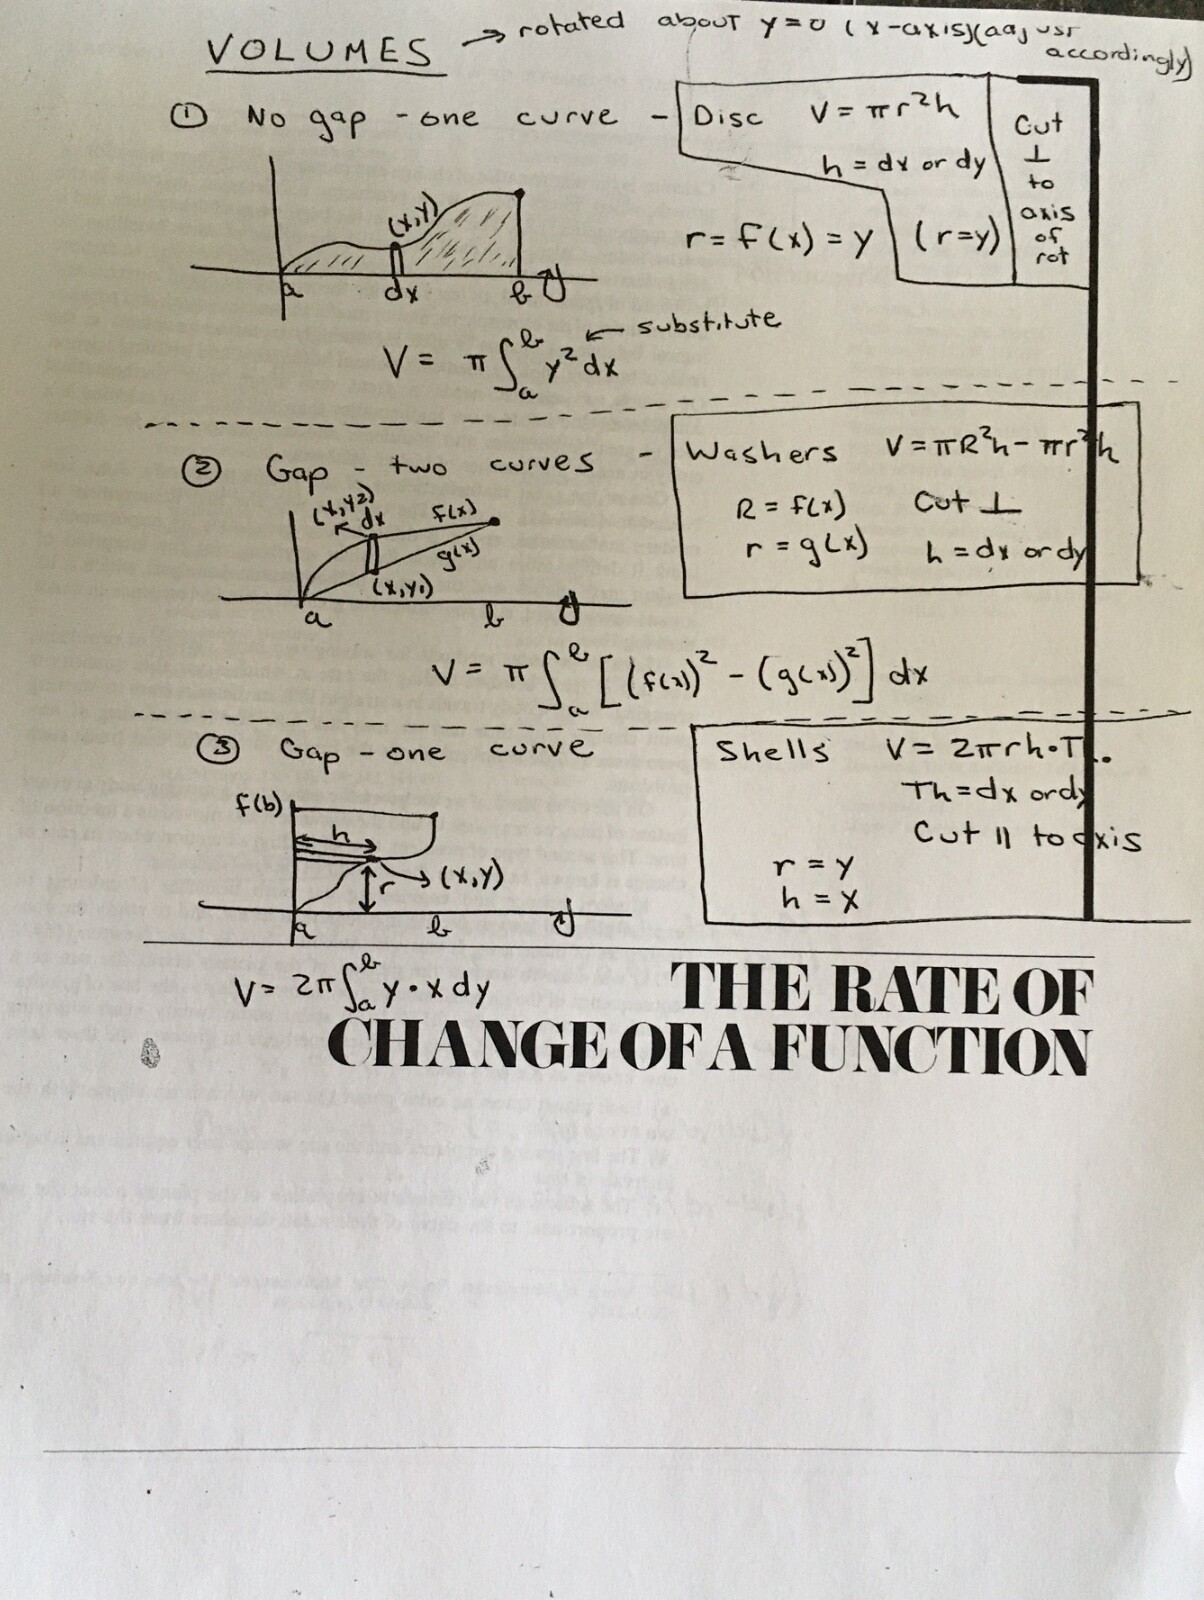 VOLUMES → rotated about y=0 (x-axis)(adjust
accordingly)
① No gap - one curve - Disc V = πr²h
h = dx or dy
Cut
⊥
to
axis
of
rot
(x,y)
r = f(x) = y (r=y)
a dx b
V = π∫ₐᵇ y² dx ← substitute
② Gap - two curves - Washers V = πR²h - πr²h
(x,y2) dx f(x)
g(x)
(x,y1)
a b
R = f(x) Cut ⊥
r = g(x) h = dx or dy
V = π∫ₐᵇ [(f(x))² - (g(x))²] dx
③ Gap - one curve
Shells V = 2πrh·T
Th = dx or dy
Cut || to axis
r = y
h = x
f(b)
h
r → (x,y)
a b
V = 2π∫ₐᵇ y·x dy
THE RATE OF
CHANGE OF A FUNCTION